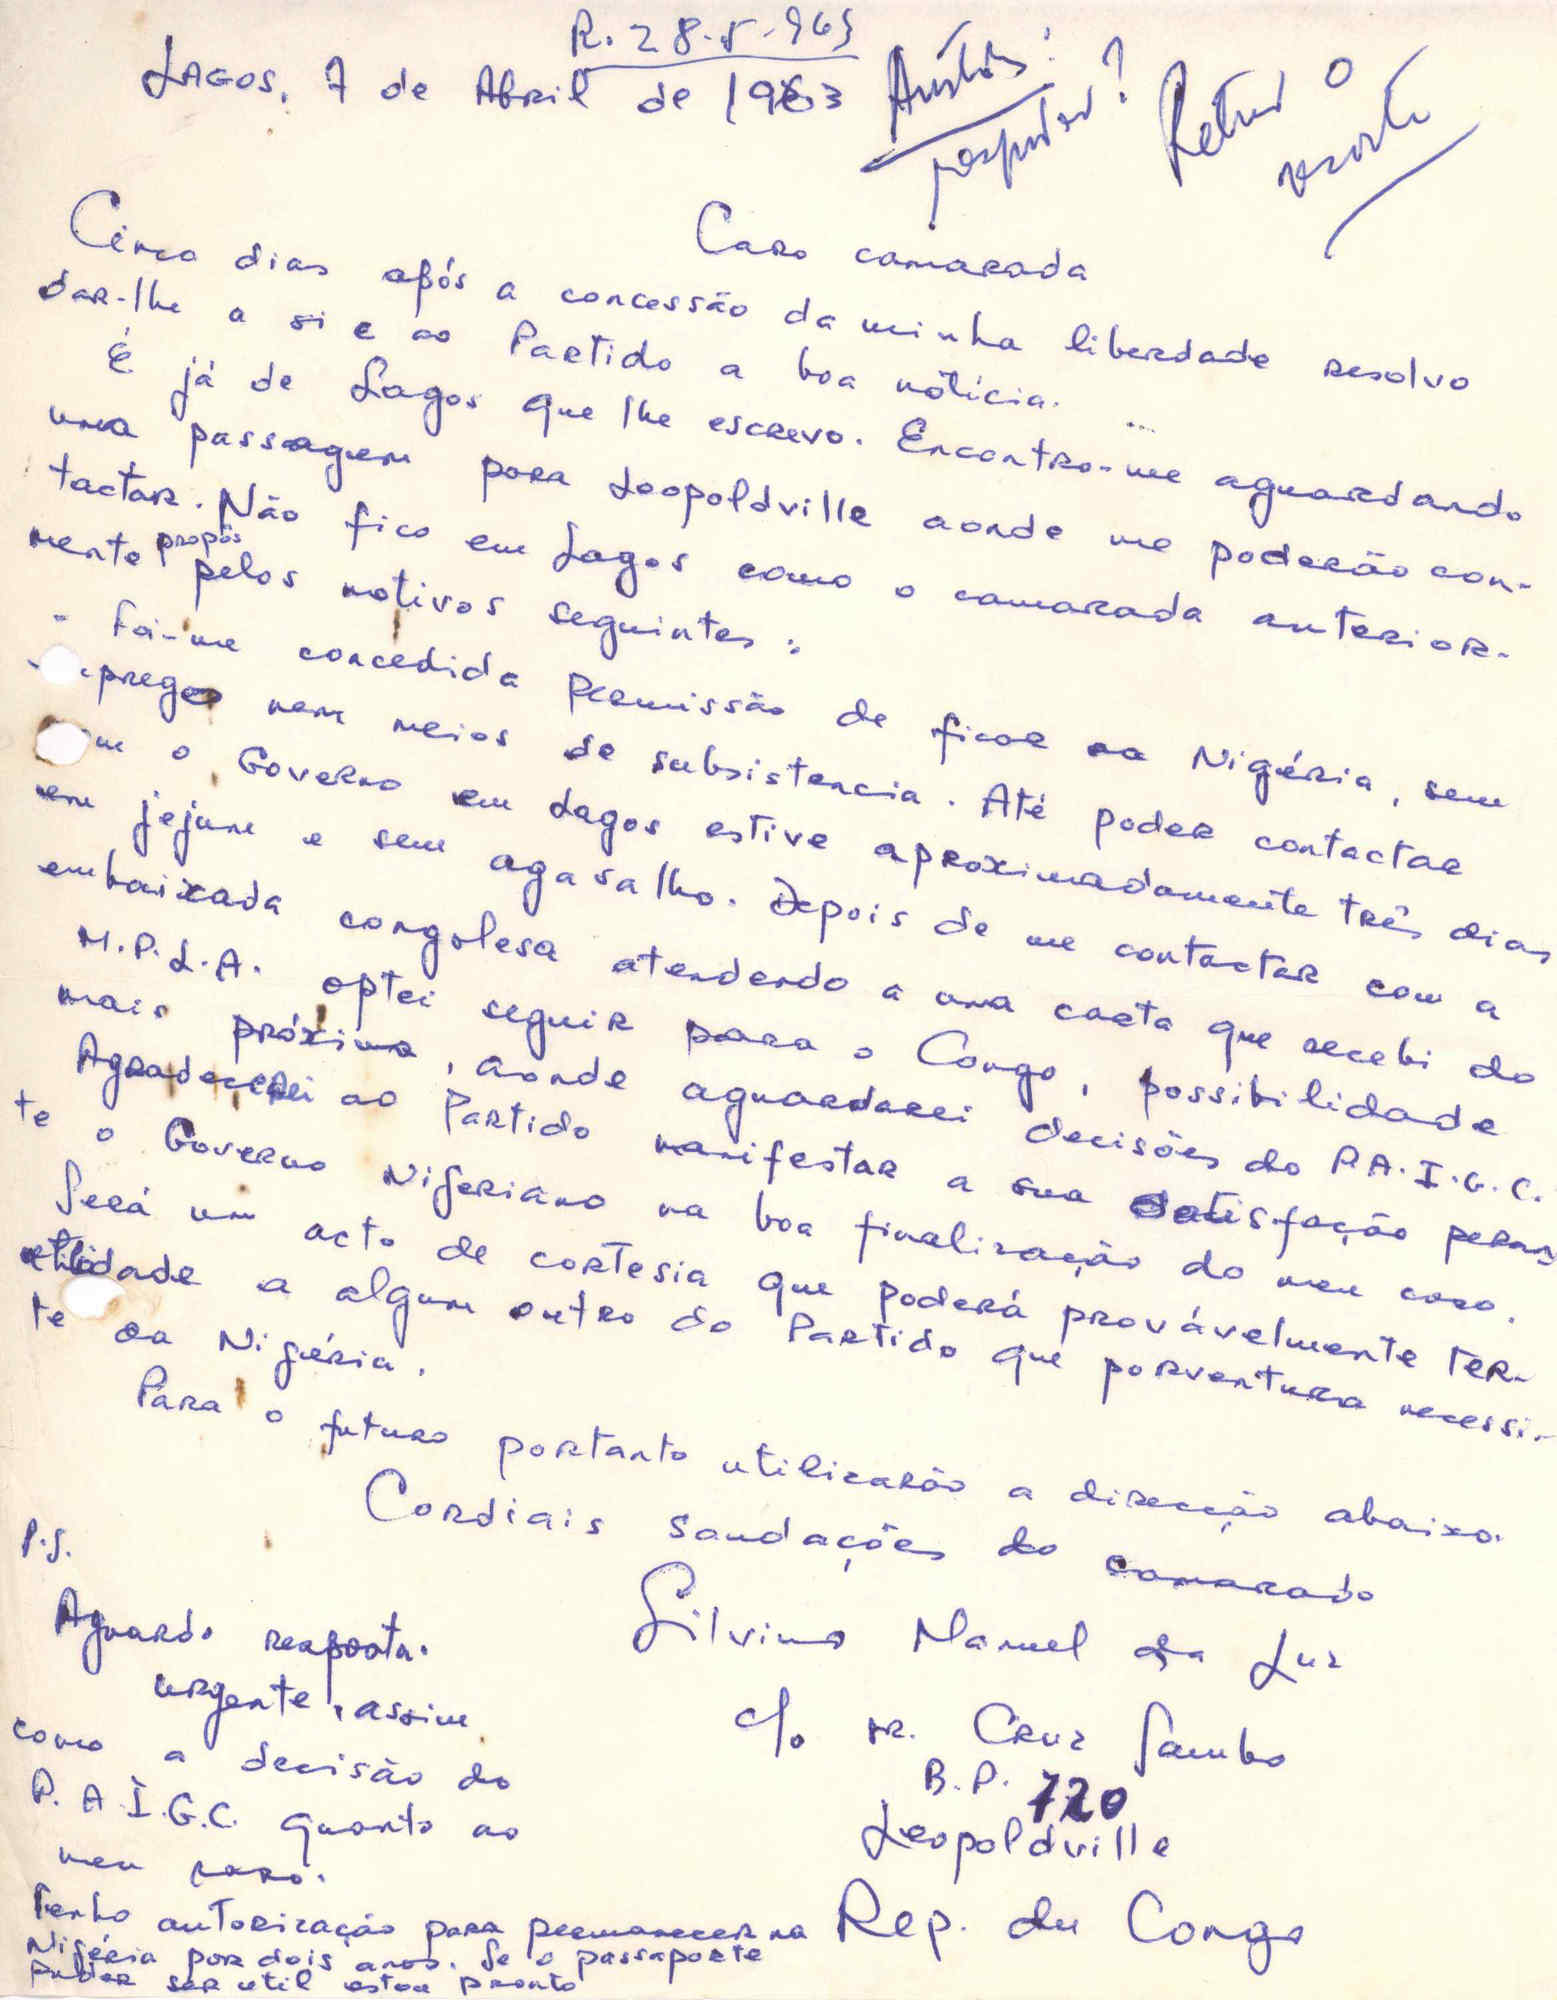 R. 28-5-963
Lagos, 7 de Abril de 1963
responder?
o
Caro camarada
Cinco dias após a concessão da minha liberdade resolvo
dar-lhe a si e ao Partido a boa nóticia.
É já de Lagos que lhe escrevo. Encontro-me aguardando
uma passagem para Leopoldville aonde me poderão con-
tactar. Não fico em Lagos como o camarada anterior-
mente propôs pelos motivos seguintes:
- Foi-me concedida permissão de ficar na Nigéria, sem
prego nem meios de subsistencia. Até poder contactar
o Governo em Lagos estive aproximadamente três dias
em jejum e sem agasalho. Depois de me contactar com a
embaixada congolesa atendendo a uma carta que recebi do
M.P.L.A. optei seguir para o Congo, possibilidade
mais próxima, aonde aguardarei decisões do P.A.I.G.C.
Agradecerei ao Partido manifestar a sua satisfação peran-
te o Governo Nigeriano na boa finalização do meu caso.
Será um acto de cortesia que poderá provávelmente ter
utilidade a algum outro do Partido que porventura necessi-
te da Nigéria.
Para o futuro portanto utilizarão a direcção abaixo.
Cordiais saudações do camarada
Silvino Manuel da Luz
c/o mr. Cruz Sambo
B.P. 720
Leopoldville
Rep. du Congo
P.S.
Aguardo resposta
urgente, assim
como a decisão do
P.A.I.G.C. quanto ao
meu caso.
Tenho autorização para permanecer na
Nigéria por dois anos. Se o passaporte
puder ser util estou pronto